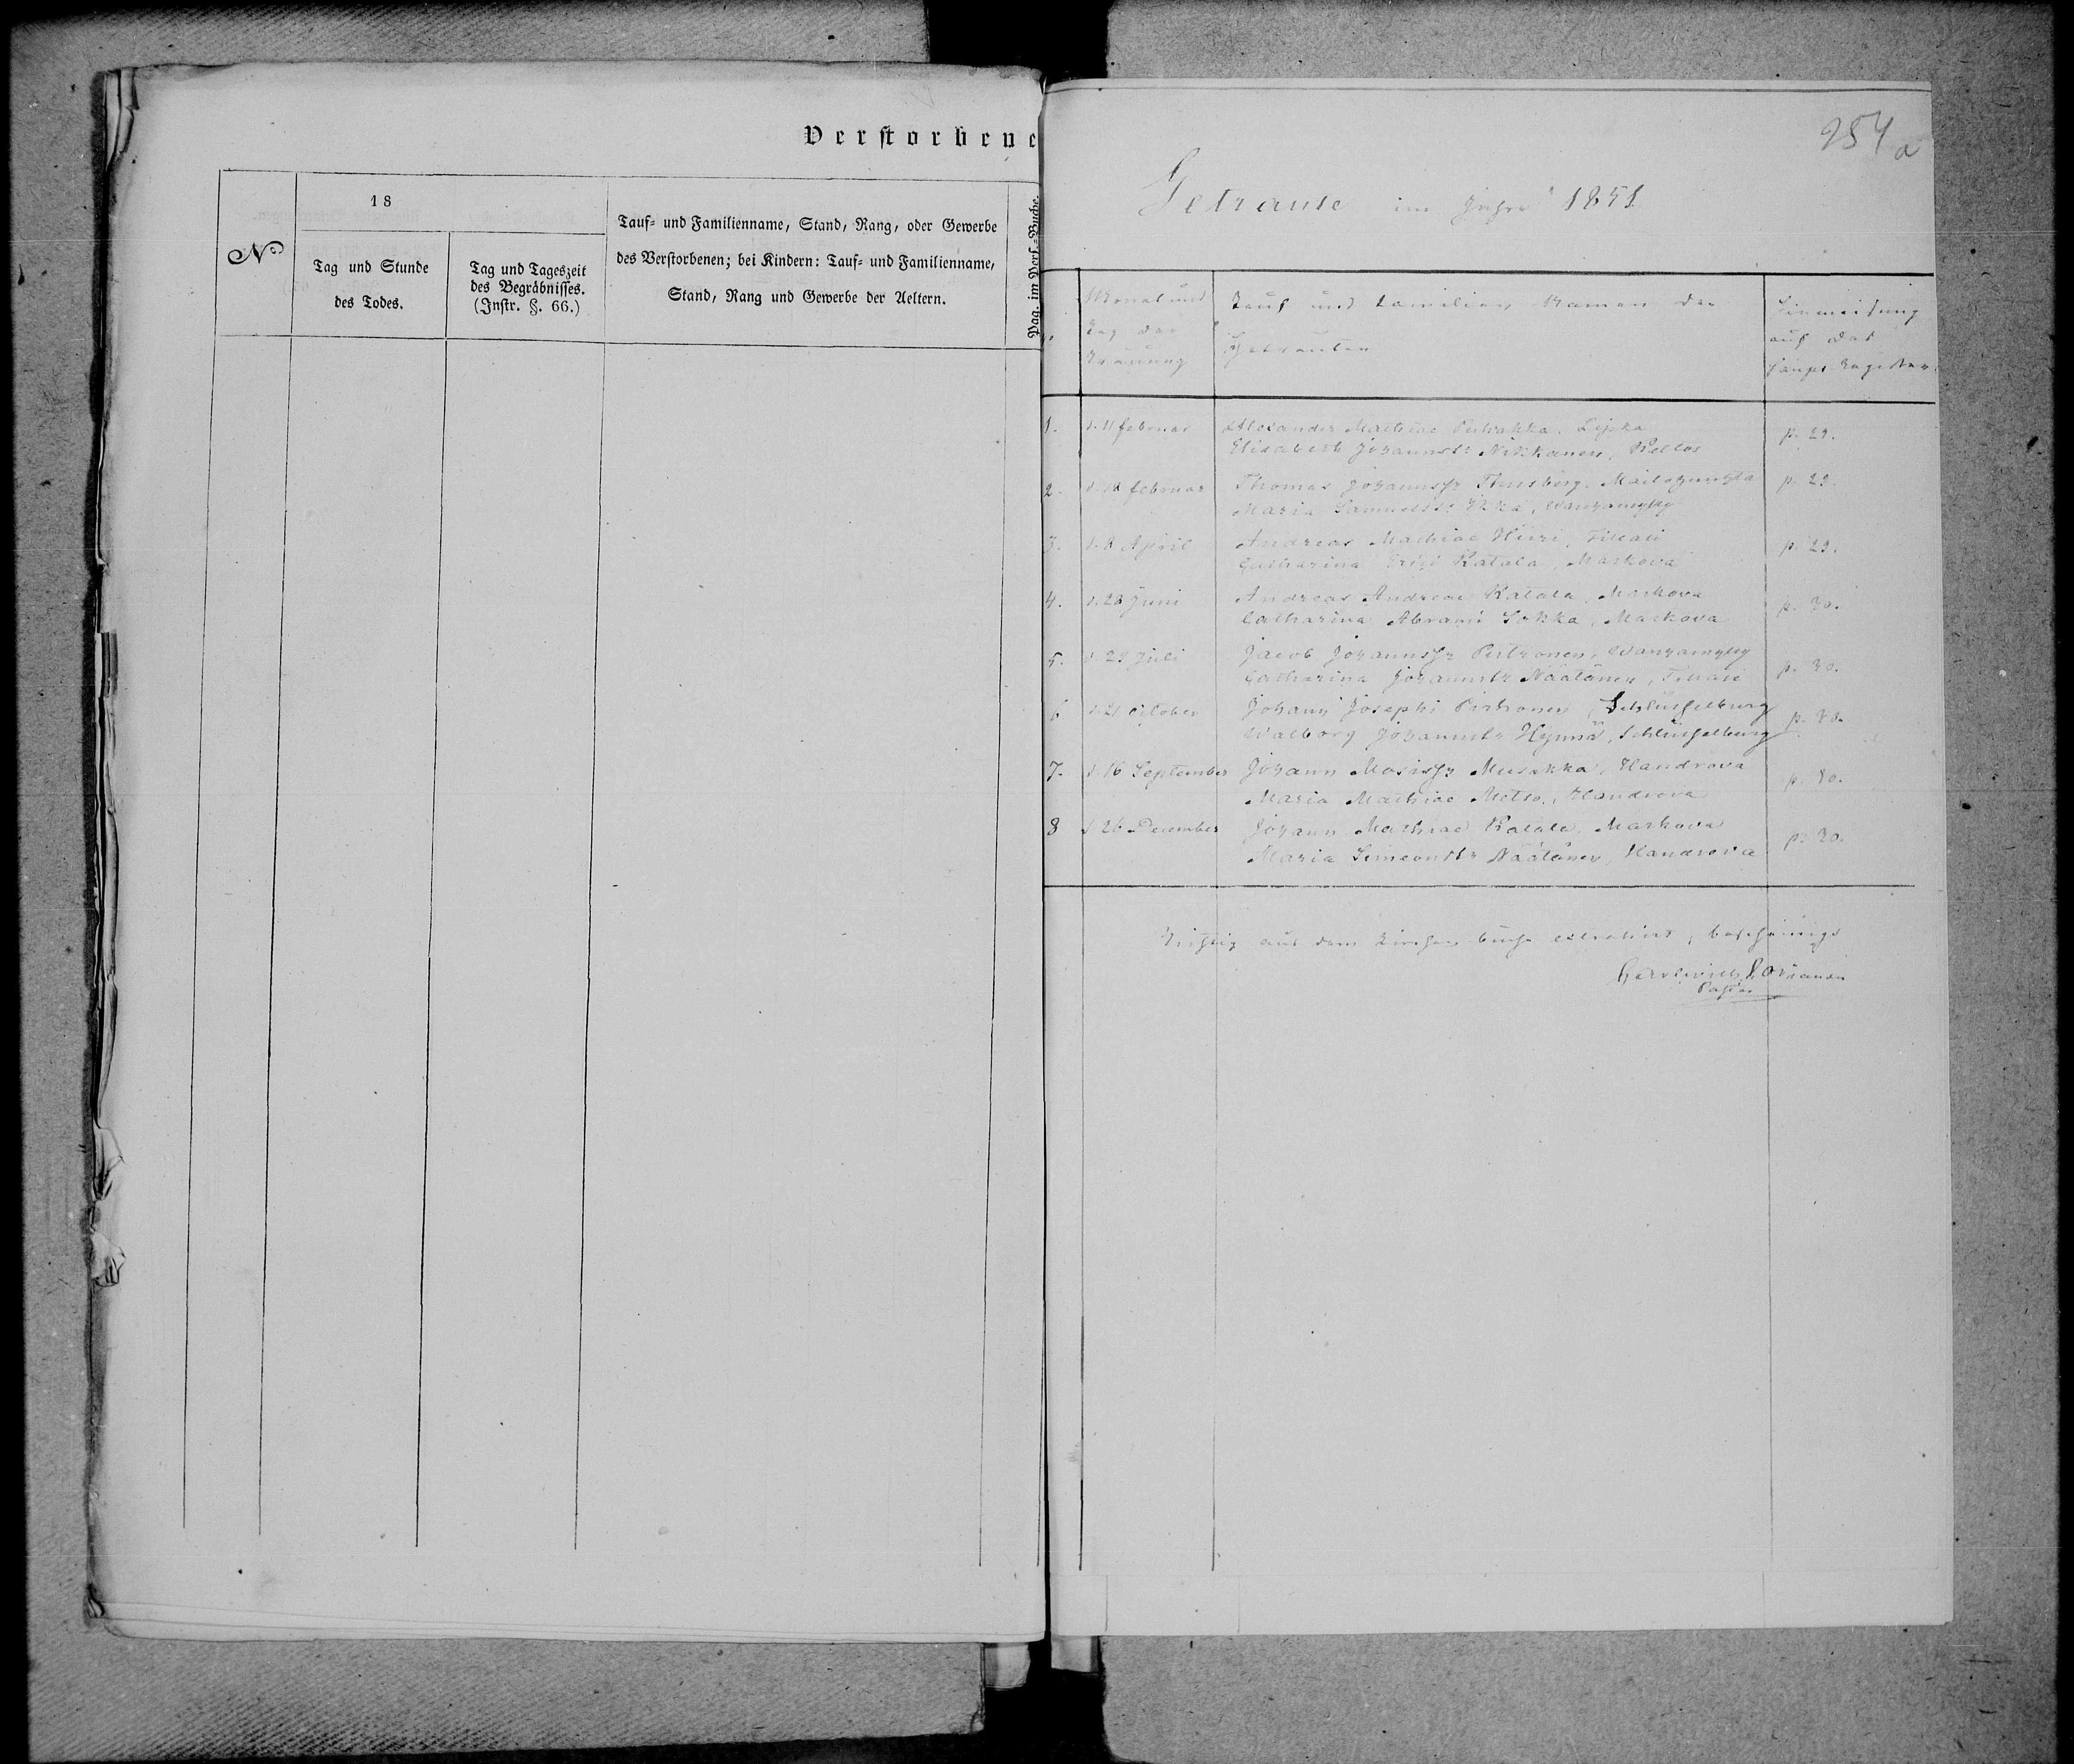 Verstorbene
No
18
Tag und Stunde
des Todes.
Tag und Tageszeit
des Begräbnisses.
(Instr. §. 66.)
Tauf- und Familienname, Stand, Rang, oder Gewerbe
des Verstorbenen; bei Kindern: Tauf- und Familienname,
Stand, Rang und Gewerbe der Aeltern.
Pag. im Pers.-Buche.
254 a
Getraute im Jahre 1851
Monat und
Tag der
Trauung
Tauf und Familien Namen der
Getrauten
Hinweisung
auf das
Haupt Register
1. d. 11 februar Alexander Mathiae
Elisabeth Johannstr Nikkanen, Pellos
p. 29.
2. februar Thomas Johannsfr
Maria
p. 29.
3. d. 8 April Andreas Mathiae
Catharina Katala, Markova
p. 29.
4. Juni Andreas Andreae Katala, Markova
Catharina Abrami Sokka, Markova
p. 30.
5. d. 29 Juli Jacob Johannsfr
Catharina Johannstr Näätänen,
p. 30.
6 d. 21 October Johann Josephi Schlüsselburg
Walborg Johannstr Hynnä, Schlüsselburg
p. 30.
7. d. 16 September Johann Mosisfr Musakka, Handrova
Maria Mathiae Metso, Handrova
p. 30.
8 d 26 December Johann Mathiae Katala, Markova
Maria Simeonstr Näätänen, Handrova
p. 30.
Richtig aus dem Kirchen buche extrahirt, bescheinigt
Pastor